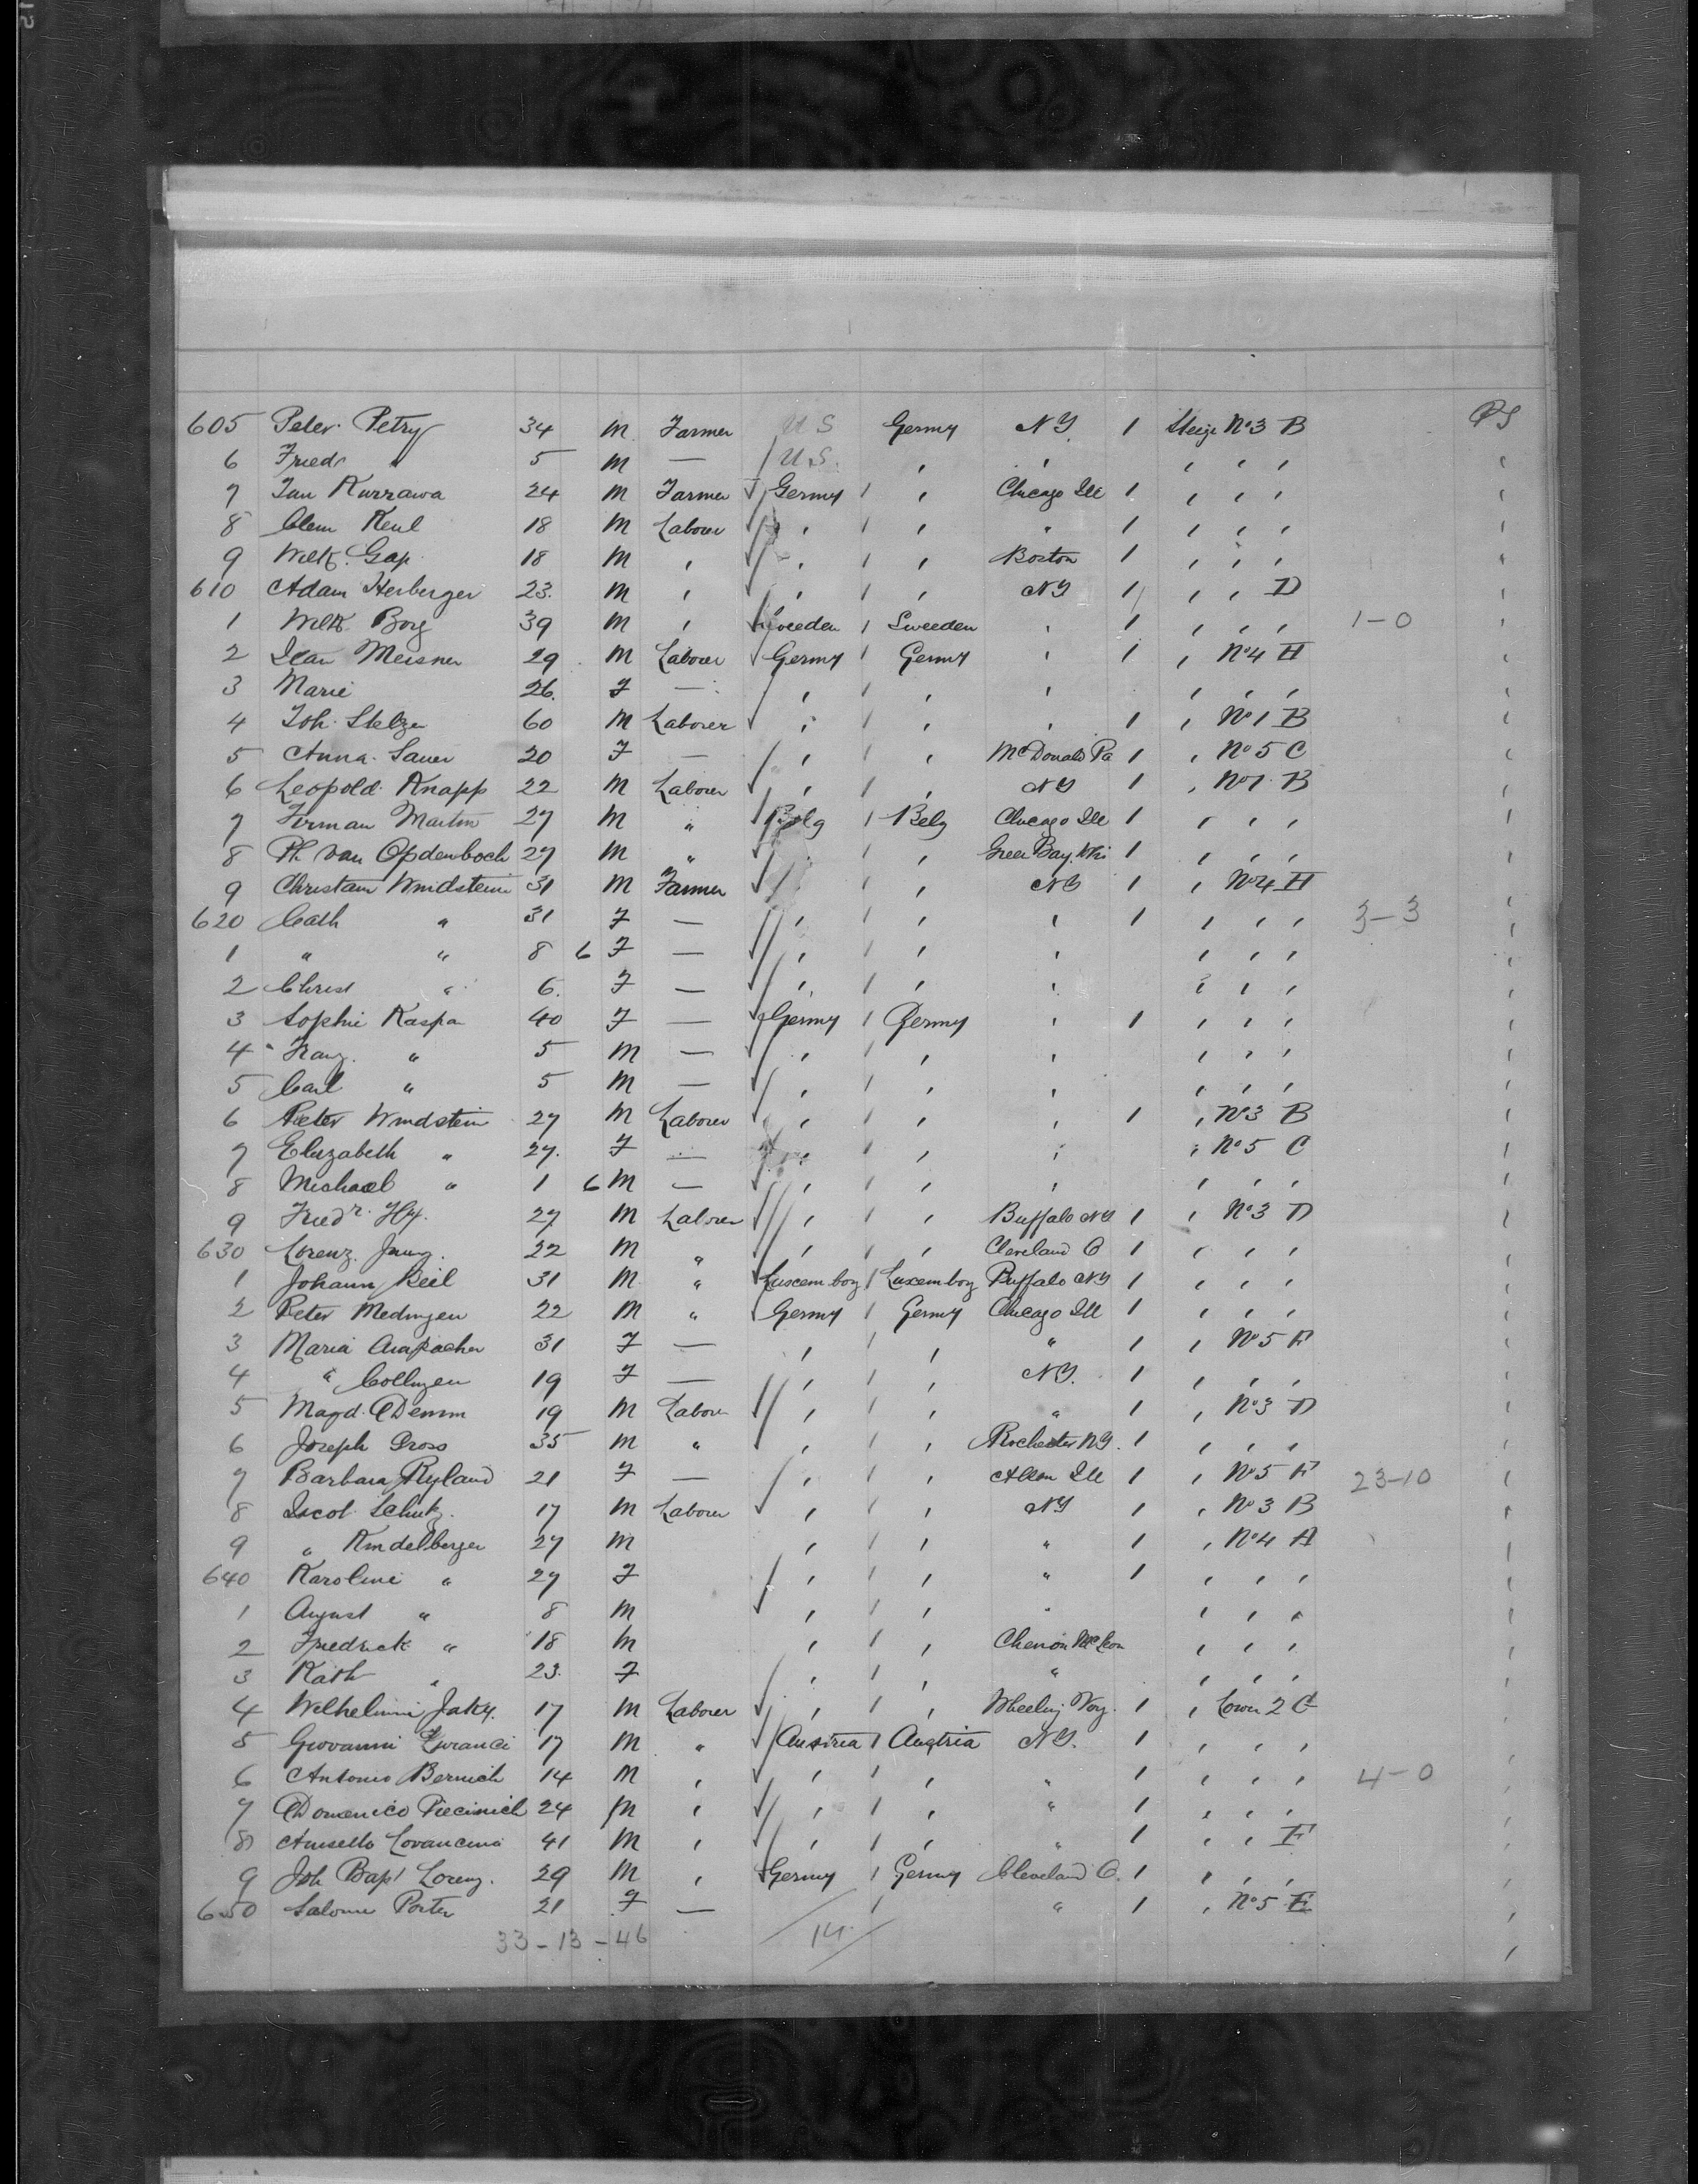 605 Peter Petry 34 M Farmer U S Germy NY 1 Steige No 3 B PS
6 Friedr " 5 M — U.S. , , , , ,
7 Jan Kurrawa 24 M Farmer Germy , Chicago Ill 1 , , ,
8 Clem Keul 18 M Laborer , , " 1 , , ,
9 Wilh. Gap 18 M , , , Boston 1 , , ,
610 Adam Herberger 23. M , , , NY 1 , , D
1 Wilh. Borg 39 M , Sweeden Sweeden , 1 , , , 1-0
2 Jean Meisner 29 M Laborer Germy Germy , 1 , No 4 H
3 Marie 26. F — , , , , , ,
4 Joh. Stelze 60 M Laborer , , , 1 , No 1 B
5 Anna Sauer 20 F — , , McDonald Pa 1 , No 5 C
6 Leopold Knapp 22 M Laborer , , NY 1 , No 1 B
7 Firman Martin 27 M " Belg Belg Chicago Ill 1 , , ,
8 Ph van Opdenboch 27 M " , Green Bay. Wis 1 , , ,
9 Christain Windstein 31 M Farmer , NY 1 , No 4 H
620 Cath " 31 F — , , , 1 , , , 3-3
1 " " 8 6 F — , , , , , ,
2 Christ " 6. F — , , , , , ,
3 Sophie Kaspa 40 F — Germy Germy , 1 , , ,
4 Franz. " 5 M — , , , , , ,
5 Carl " 5 M — , , , , , ,
6 Peter Windstein 27 M Laborer , , , 1 , No 3 B
7 Elizabeth " 27. F — , , , , No 5 C
8 Michael " 1 6 M — , , , , , ,
9 Friedr. 27 M Laborer , , Buffalo NY 1 , No 3 D
630 Lorenz. Jung. 22 M " , , Cleveland O 1 , , ,
1 Johann Beil 31 M " Luxemborg Luxemborg Buffalo NY 1 , , ,
2 Peter Medingen 22 M " Germy Germy Chicago Ill 1 , , ,
3 Maria 31 F — , , " 1 , No 5 F
4 " Collingen 19 F — , , NY. 1 , , ,
5 Magd. Demm 19 M Laborer , , " 1 , No 3 D
6 Joseph Gross 35 M " , , Rochester NY. 1 , , ,
7 Barbara Ryland 21 F — , , Alton Ill 1 , No 5 F 23-10
8 Jacob Schutz. 17 M Laborer , , NY 1 , No 3 B
9 " Kindelberger 27 M , , " 1 , No 4 A
640 Karoline " 27 F , , " 1 , , ,
1 August " 8 M , , " , , ,
2 Friedrick " 18 M , , , , ,
3 Kath " 23. F , , " , , ,
4 Wilhelmi Jaky. 17 M Laborer , , Wheeling 1 , Lower 2 C
5 Giovanni 17 M " Austria Austria NY. 1 , , ,
6 Antonio Bernich 14 M , , , " 1 , , , 4-0
7 Domenico Piecinich 24 M , , , " 1 , , ,
8 Aniello Lovancino 41 M , , , " 1 , , F
9 Joh Bapt Lorenz. 29 M , Germy Germy Cleveland O. 1 , , ,
650 Salome Porter 21 F — " 1 , No 5 E
33-13-46 14